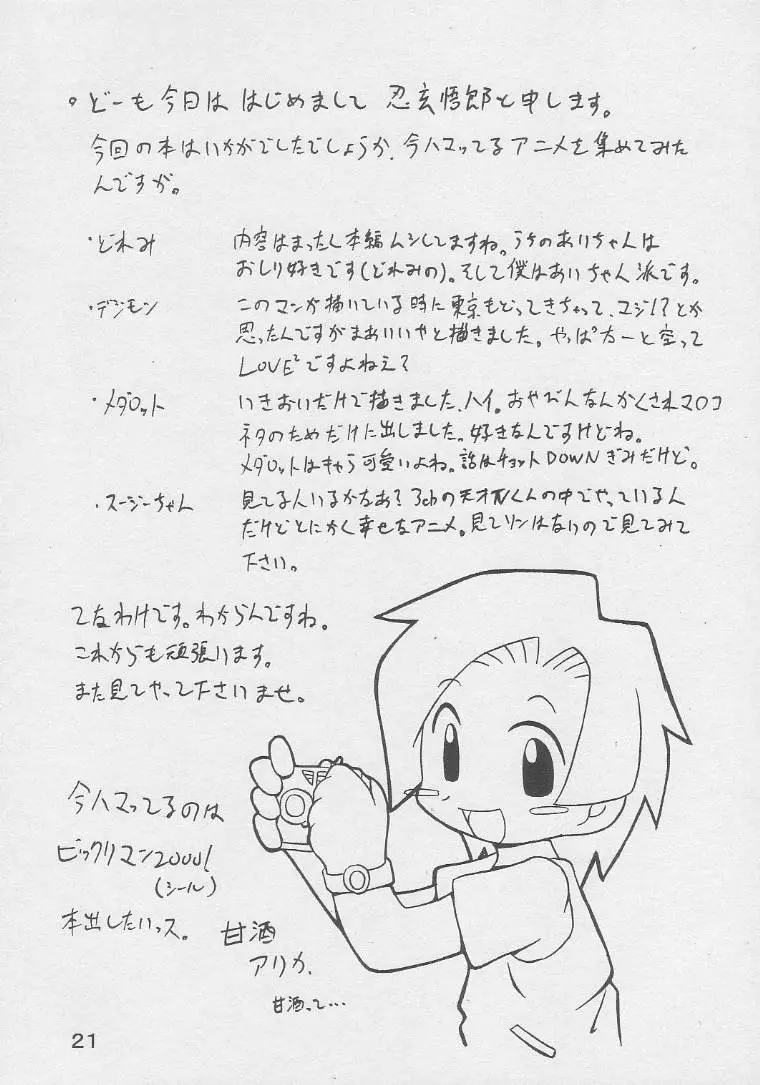 どーも今日は はじめまして 忍玄悟郎と申します。
今回の本はいかがでしたでしょうか、今ハマってるアニメを集めてみた
んですが。
・どれみ 内容はまったく本編ムシしてますね。うちのあいちゃんは
おしり好きです(どれみの)。そして僕はあいちゃん派です。
・デジモン このマンガ描いている時に東京もどってきちゃって、マジ!?とか
思ったんですがまあいいやと描きました。やっぱ太一と空って
LOVE²ですよねえ?
・メダロット いきおいだけで描きました、ハイ。おやびんなんかくされマロコ
ネタのためだけに出しました。好きなんですけどね。
メダロットはキャラ可愛いよね。話はチョットDOWNぎみだけど。
・スージーちゃん 見てる人いるかなあ? 3chの天才くんの中でやっているん
だけどとにかく幸せなアニメ。見てソンはないので見てみて
下さい。
てなわけです。わからんですね。
これからも頑張ります。
また見てやって下さいませ。
今ハマってるのは
ビックリマン2000!
(シール)
本出したいっス。
甘酒
アリカ、
甘酒って…
21